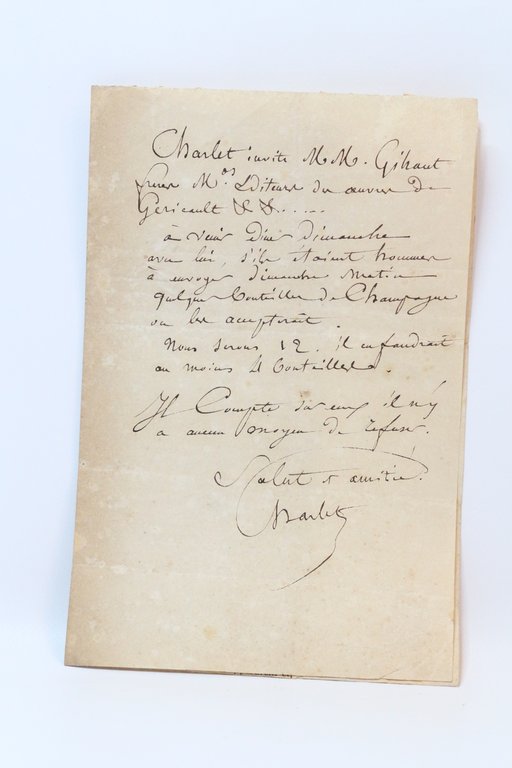 Charlet invite MM. Gihaut
freres Mds Editeurs des œuvres de
Géricault && .....
à venir diner dimanche
avec lui, s'ils étaient hommes
à envoyer dimanche matin
quelques bouteilles de Champagne
on les accepterait.
Nous serons 12. il en faudrait
au moins 4 bouteilles.
Il Compte sur eux il n'y
a aucun moyen de refuser.
Salut et amitié.
Charlet